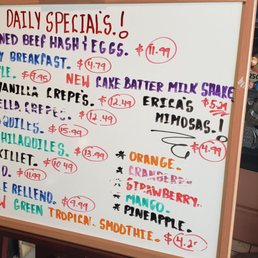 DAILY SPECIAL'S.!
NED BEEF HASH & EGGS. $11.99
Y BREAKFAST. $4.79
FLE. $9.95 NEW CAKE BATTER MILK SHAKE $5.29
VANILLA CREPE'S. $12.49
ELLA CREPES. $12.49
ERICA'S MIMOSAS.! $4.99
QUILES. $15.99
HILAQUILES. $13.99
KILLET. $10.49
$11.99
E RELLENO. $9.99
* ORANGE.
* CRANBERRY.
* STRAWBERRY.
* MANGO.
* PINEAPPLE.
W GREEN TROPICAL SMOOTHIE. $4.25